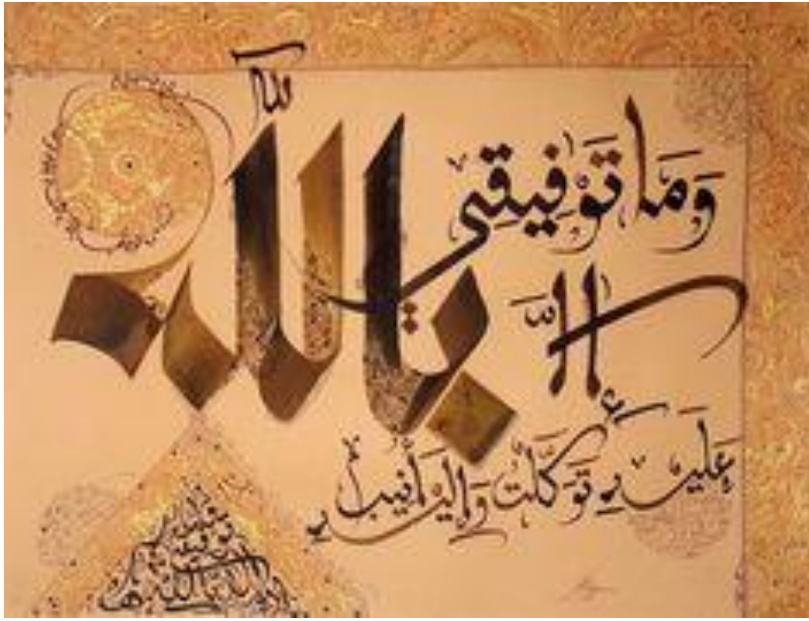 وَمَا تَوْفِيقِي
إِلَّا
بِاللَّه
عَلَيْهِ تَوَكَّلْتُ وَإِلَيْهِ أُنِيبُ